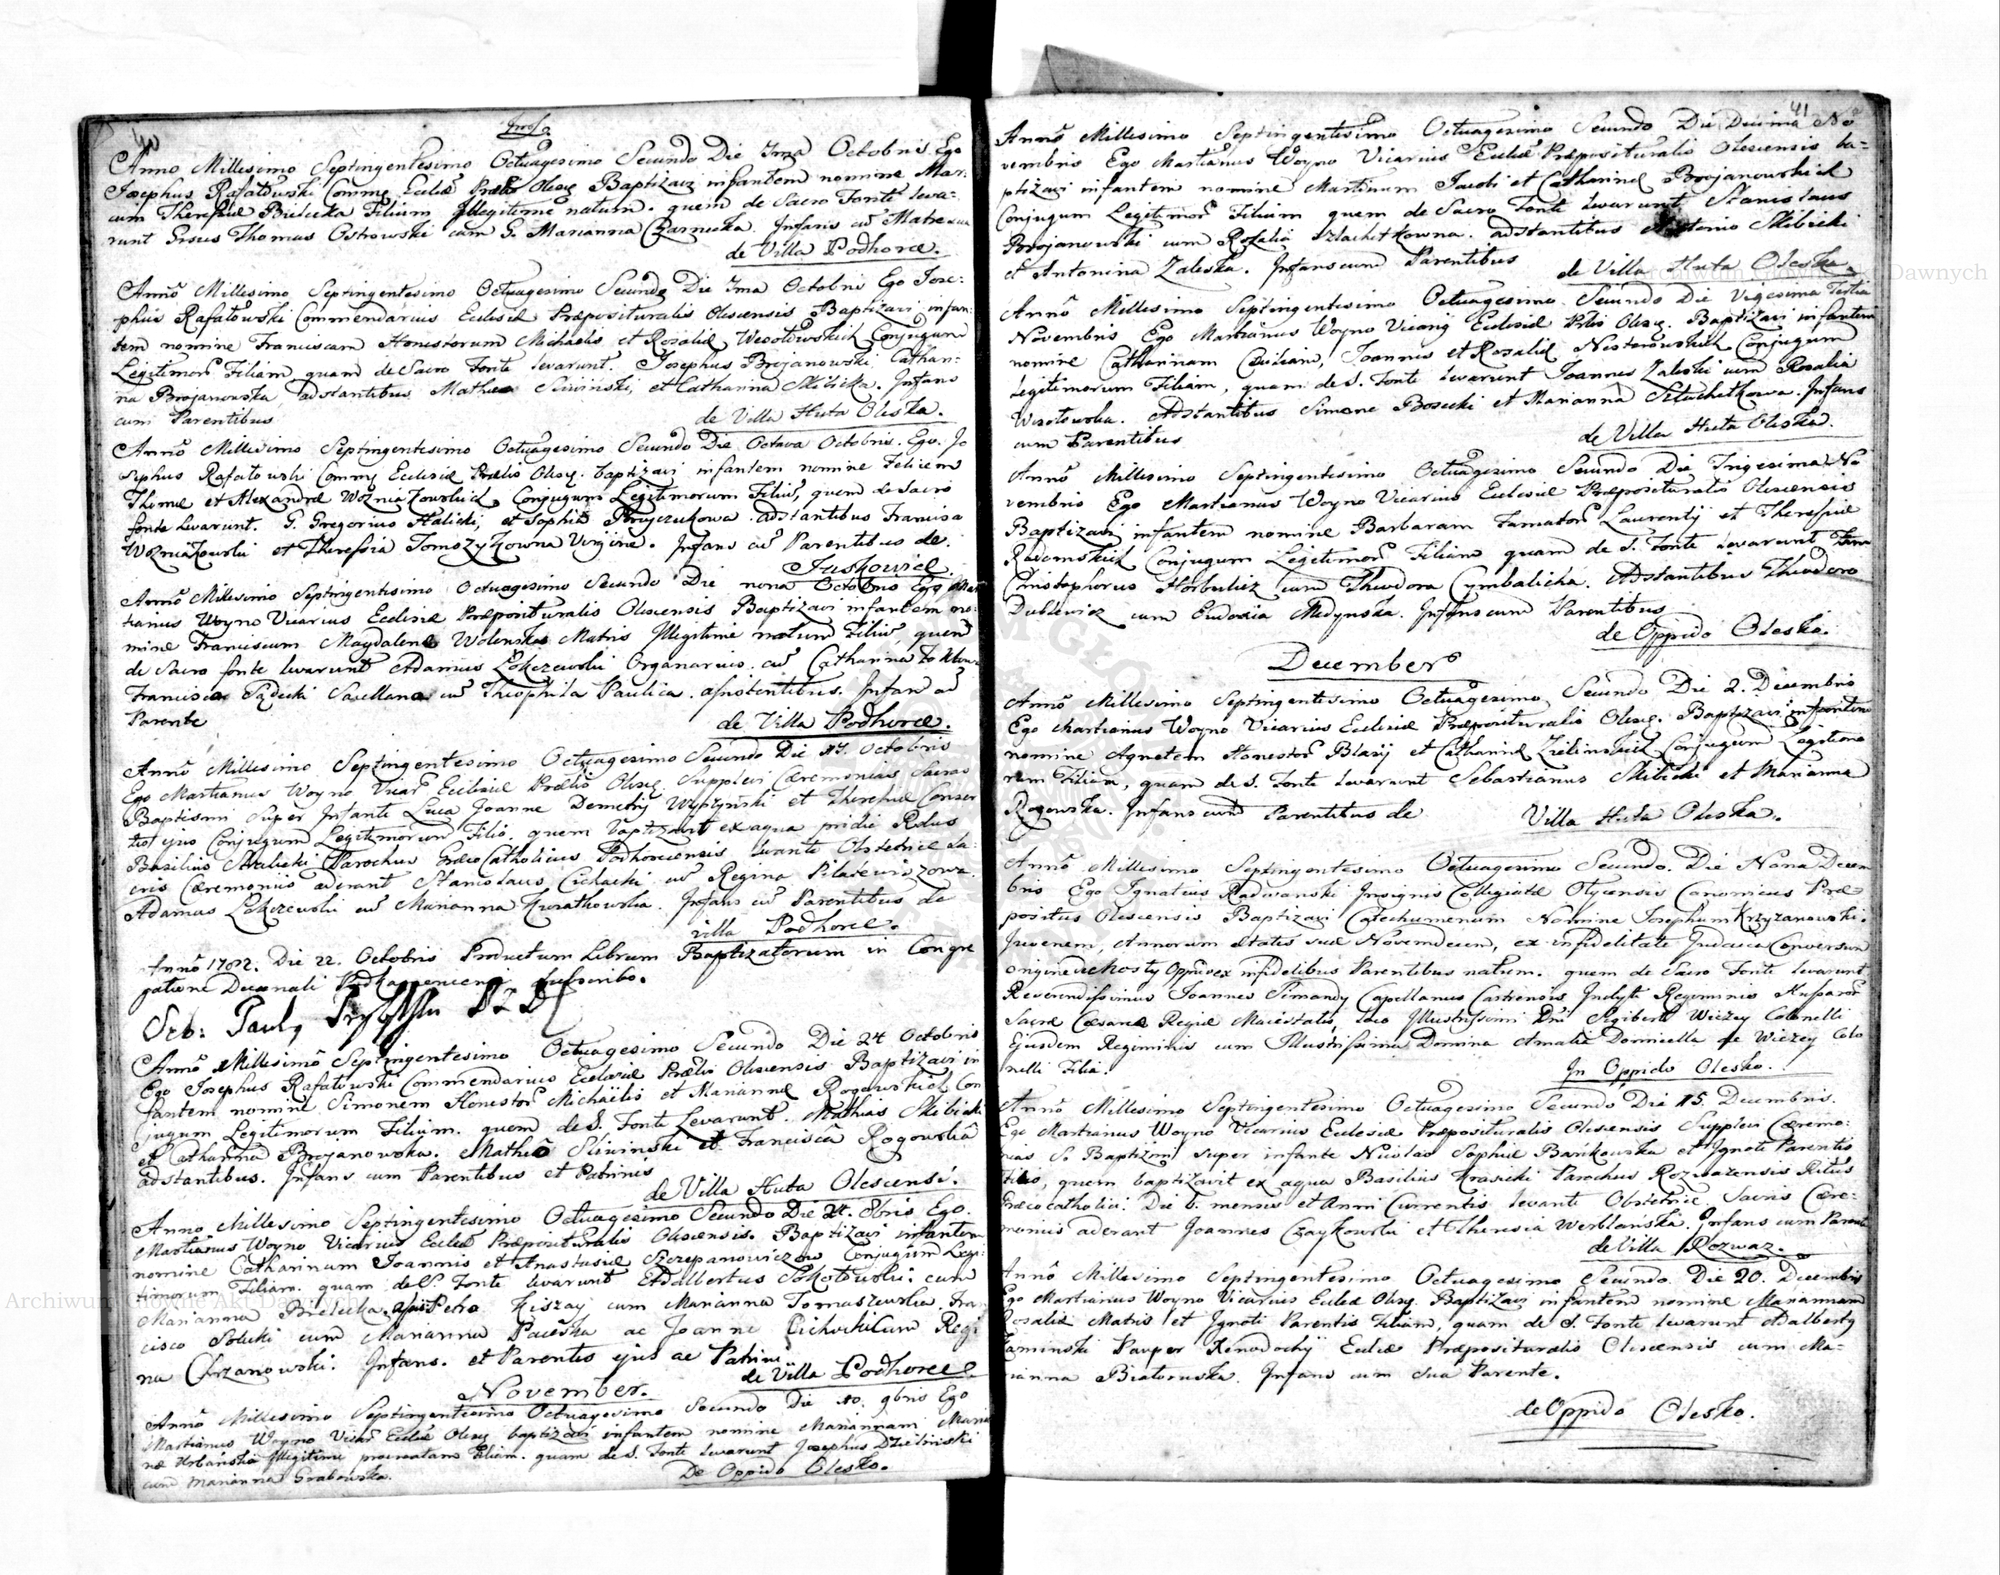 40
Anno Millesimo Septingentesimo Octuagesimo Secundo Die Ima Octobris Ego
Josephus Rafałowski Comm. Ecclæ Prælis Olesc. Baptizavi infantem nomine Mar-
cum Theresiæ Bielecka Filium Illegitimè natum. quem de Sacro Fonte leva-
runt Thomas Ostrowski cum G. Marianna Czarnecka. Infans cũ Matre sua
de Villa Podhorce.
Annô Millesimo Septingentesimo Octuagesimo Secundo Die Ima Octobris Ego Jose-
phus Rafałowski Commendarius Ecclesiæ Præposituralis Olescensis Baptizavi infan-
tem nomine Franciscam Honestorum Michaelis et Rosaliæ Wesołowskich Conjugum
Legitimor Filiam quam de Sacro Fonte levarunt. Josephus Brojanowski Cathari-
na Brojanowska, adstantibus Matheo Siwiński, et Catharina Skibicka. Infans
cum Parentibus
de Villa Huta Oleska.
Annô Millesimo Septingentesimo Octuagesimo Secundo Die Octava Octobris. Ego. Jo
sephus Rafałowski Comm. Ecclesiæ Prælis Olesc. baptizavi infantem nomine Felicem
Thomæ et Alexandræ Wozniakowskich Conjugum Legitimorum Filiũ, quem de Sacro
fonte Levarunt. G. Gregorius Halicki, et Sophia Adstantibus Francisca
Wozniakowski et Theressia Tomozykowna Virgine. Infans cũ Parentibus de.
Juskowice.
Annô Millesimo Septingentesimo Octuagesimo Secundo Die nona Octobris Ego Mar
tianus Woyno Vicarius Ecclesiæ Præposituralis Olescensis Baptizavi infantem no-
mine Franciscum Magdalenæ Wolenska Matris Illegitimè natum Filiũ, quem
de Sacro fonte levarunt Adamus Łokczewski Organarius. cũ Catharina
Francisco Sądecki cũ Theophila Paulica. assistentibus. Infans cũ
Parente
de Villa Podhorce.
Annô Millesimo Septingentesimo Octuagesimo Secundo Die 17. Octobris
Ego Martianus Woyno Vicar Ecclesiæ Prælis Olesc. Supplevi Cæremonias Sacras
Baptismi Super Infante Luca Joanne Demetry Wyszynski et Theresiæ Consor
tis ejus Conjugum Legitimorum Filio. quem baptizavit ex aqua pridie Rdus
Basilius Parochus Græco Catholicus Podhorcensis levante Obstetrice Sa-
cris Cæremoniis aderant Stanislaus Cichocki cũ Regina
Adamus Łokczewski cũ Marianna Kuratkowska. Infans cũ Parentibus de
villa Podhorce.
Annô 1782. Die 22. Octobris Productum Librum Baptizatorum in Congre
gatione Decanali subscribo.
Seb: Pauly
Annô Millesimô Septingentesimo Octuagesimo Secundo Die 24 Octobris
Ego Josephus Rafałowski Commendarius Ecclesiæ Prælis Olescensis Baptizavi in
fantem nomine Simonem Honestor Michaëlis et Mariannæ Rogowskich Con
jugum Legitimorum Filium. quem de S. Fonte Levarunt. Mathias Skibicki
et Catharina Brojanowska. Matheô Siwinski et Francisca Rogowska
adstantibus. Infans cum Parentibus et Patrinis
de Villa Huta Olescensi.
Anno Millesimo Septingentesimo Octuagesimo Secundo Die 24. 8bris Ego.
Martianus Woyno Vicarius Ecclæ Præposituralis Olescensis. Baptizavi infantem
nomine Catharinam Joannis et Anastasiæ Szczepanowiczow Conjugum Legi-
timorum Filiam. quam de S. Fonte levarunt Adalbertus Sokołowski: cum
Marianna Bielecka. Petro Kiszay cum Marianna Tomaszewska. Fran
cisco Solecki cum Marianna ac Joanne Cichocki cum Regi
na Chrzanowski. Infans. et Parentes ejus ac Patrini
de Villa Podhorce.
November.
Annô Millesimo Septingentesimo Octuagesimo Secundo Die 10. 9bris Ego
Martianus Woyno Vicar Ecclæ Olesc baptizavi infantem nomine Mariannam Maria
næ Urbańska Illegitime procreatam Filiam. quam de S. Fonte levarunt Josephus Dzieliński
cum Marianna Grabowska.
De Oppido Olesko.
41
Annô Millesimo Septingentesimo Octuagesimo Secundo Die Decima No
vembris Ego Martianus Woyno Vicarius Ecclæ Præposituralis Olescensis ba-
ptizavi infantem nomine Martinum Jacobi et Catharinæ Brojanowskich
Conjugum Legitimor Filium quem de Sacro Fonte levarunt Stanislaus
Brojanowski cum Rozalia Szlachetkowna. adstantibus Antonio Skibicki
et Antonina Zaleska. Infans cum Parentibus
de Villa Huta Oleska.
Annô Millesimo Septingentesimo Octuagesimo Secundo Die Vigesima Tertia
Novembris Ego Martianus Woyno Vicarig Ecclesiæ Prlis Olesc. Baptizavi infantem
nomine Catharinam Joannis et Rosaliæ Nestorowskich Conjugum
Legitimorum Filiam, quam de S. Fonte levarunt Joannes Zaleski cum Rosalia
Wesołowska. Adstantibus Simone Bosecki et Marianna Szlachetkowa. Infans
cum Parentibus
de Villa Huta Oleska.
Annô Millesimo Septingentesimo Octuagesimo Secundo Die Trigesima No
vembris Ego Martianus Woyno Vicarius Ecclesiæ Præposituralis Olescensis
Baptizavi infantem nomine Barbaram Famator Laurentij et Theresiæ
Radomskich Conjugum Legitimor Filiam quam de S. Fonte levarunt
Christophorus Horbulicz cum Theodora Cymbalicha. Adstantibus Theodoro
Dubiewicz cum Eudoxia Medynska. Infans cum Parentibus
de Oppido Olesko.
December
Annô Millesimo Septingentesimo Octuagesimo Secundo Die 2. Decembris
Ego Martianus Woyno Vicarius Ecclesiæ Præposituralis Olesc. Baptizavi infantem
nomine Agnetem Honestor Blasij et Catharinæ Zielinskich Conjugum Legitimo
rum Filiam, quam de S. Fonte levarunt Sebastianus Skibicki et Marianna
Rogowska. Infans cum Parentibus de
Villa Huta Oleska.
Annô Millesimo Septingentesimo Octuagesimo Secundo. Die Nona Decem
bris Ego Ignatius Radwanski Insignis Collegiatæ Olycensis Canonicus Præ
positus Olescensis Baptizavi Catechumenum Nomine Josephum Krzyzanowski.
Juvenem, Annorum ætatis suæ Novemdecim, ex infidelitate Judaica Conversum
origine de Rosty Oppido ex infidelibus Parentibus natum. quem de Sacro Fonte levarunt
Reverendissimus Joannes Simandy Capellanus Castrensis Inclyti Regiminis Husaror
Sacræ Cæsareæ Regiæ Maiestatis, loco Illustrissimi Dni Sigiberti Wiczey Colonelli
Ejusdem Regiminis cum Illustrissima Domina Amalia Domicella de Wiczey Colo
nelli Filia.
In Oppido Olesko.
Annô Millesimo Septingentesimo Octuagesimo Secundo Die 15. Decembris.
Ego Martianus Woyno Vicarius Ecclesiæ Præposituralis Olescensis Supplevi Cæremo-
nias S. Baptizmi super infante Nicolao Sophiæ Bańkowska et Ignoti Parentis
Filio, quem baptizavit ex aqua Basilius Krasicki Parochus Rozwazensis Ritûs
Græco catholici. Die 6. mensis et Anni Currentis levante Obstetrice. Sacris Cære-
moniis aderant Joannes Czaykowski et Theresia Werblańska. Infans cum Parente
de Villa Rozwaz.
Annô Millesimo Septingentesimo Octuagesimo Secundo. Die 20. Decembris
Ego Martianus Woyno Vicarius Ecclæ Olesc. Baptizavi infantem nomine Mariannam
Rosaliæ Matris et Ignoti Parentis Filiam, quam de S. Fonte levarunt Adalbertg
Kaminski Pauper Xenodochij Ecclæ Præposituralis Olescensis cum Ma-
rianna Białoruska. Infans cum sua Parente.
de Oppido Olesko.
Archiwum Główne Akt Dawnych
Archiwum Główne Akt Dawnych